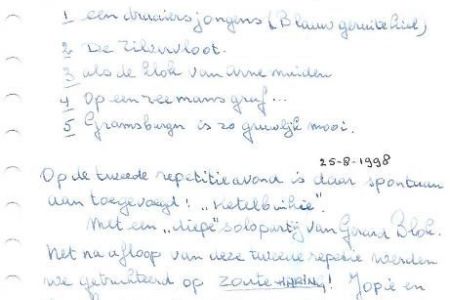 1 een draaiersjongens (Blauw geruite kiel)
2 De Zilvervloot.
3 als de klok van Arnemuiden
4 Op een zeemansgraf...
5 Gramsbergen is zo gruwelijk mooi.
25-8-1998
Op de tweede repetitieavond is daar spontaan
aan toegevoegd! "Ketelbinkie".
Met een "diepe" solopartij van Gerard Blok.
Net na afloop van deze tweede repetitie werden
we getrakteerd op zoute HARING! Jopie en